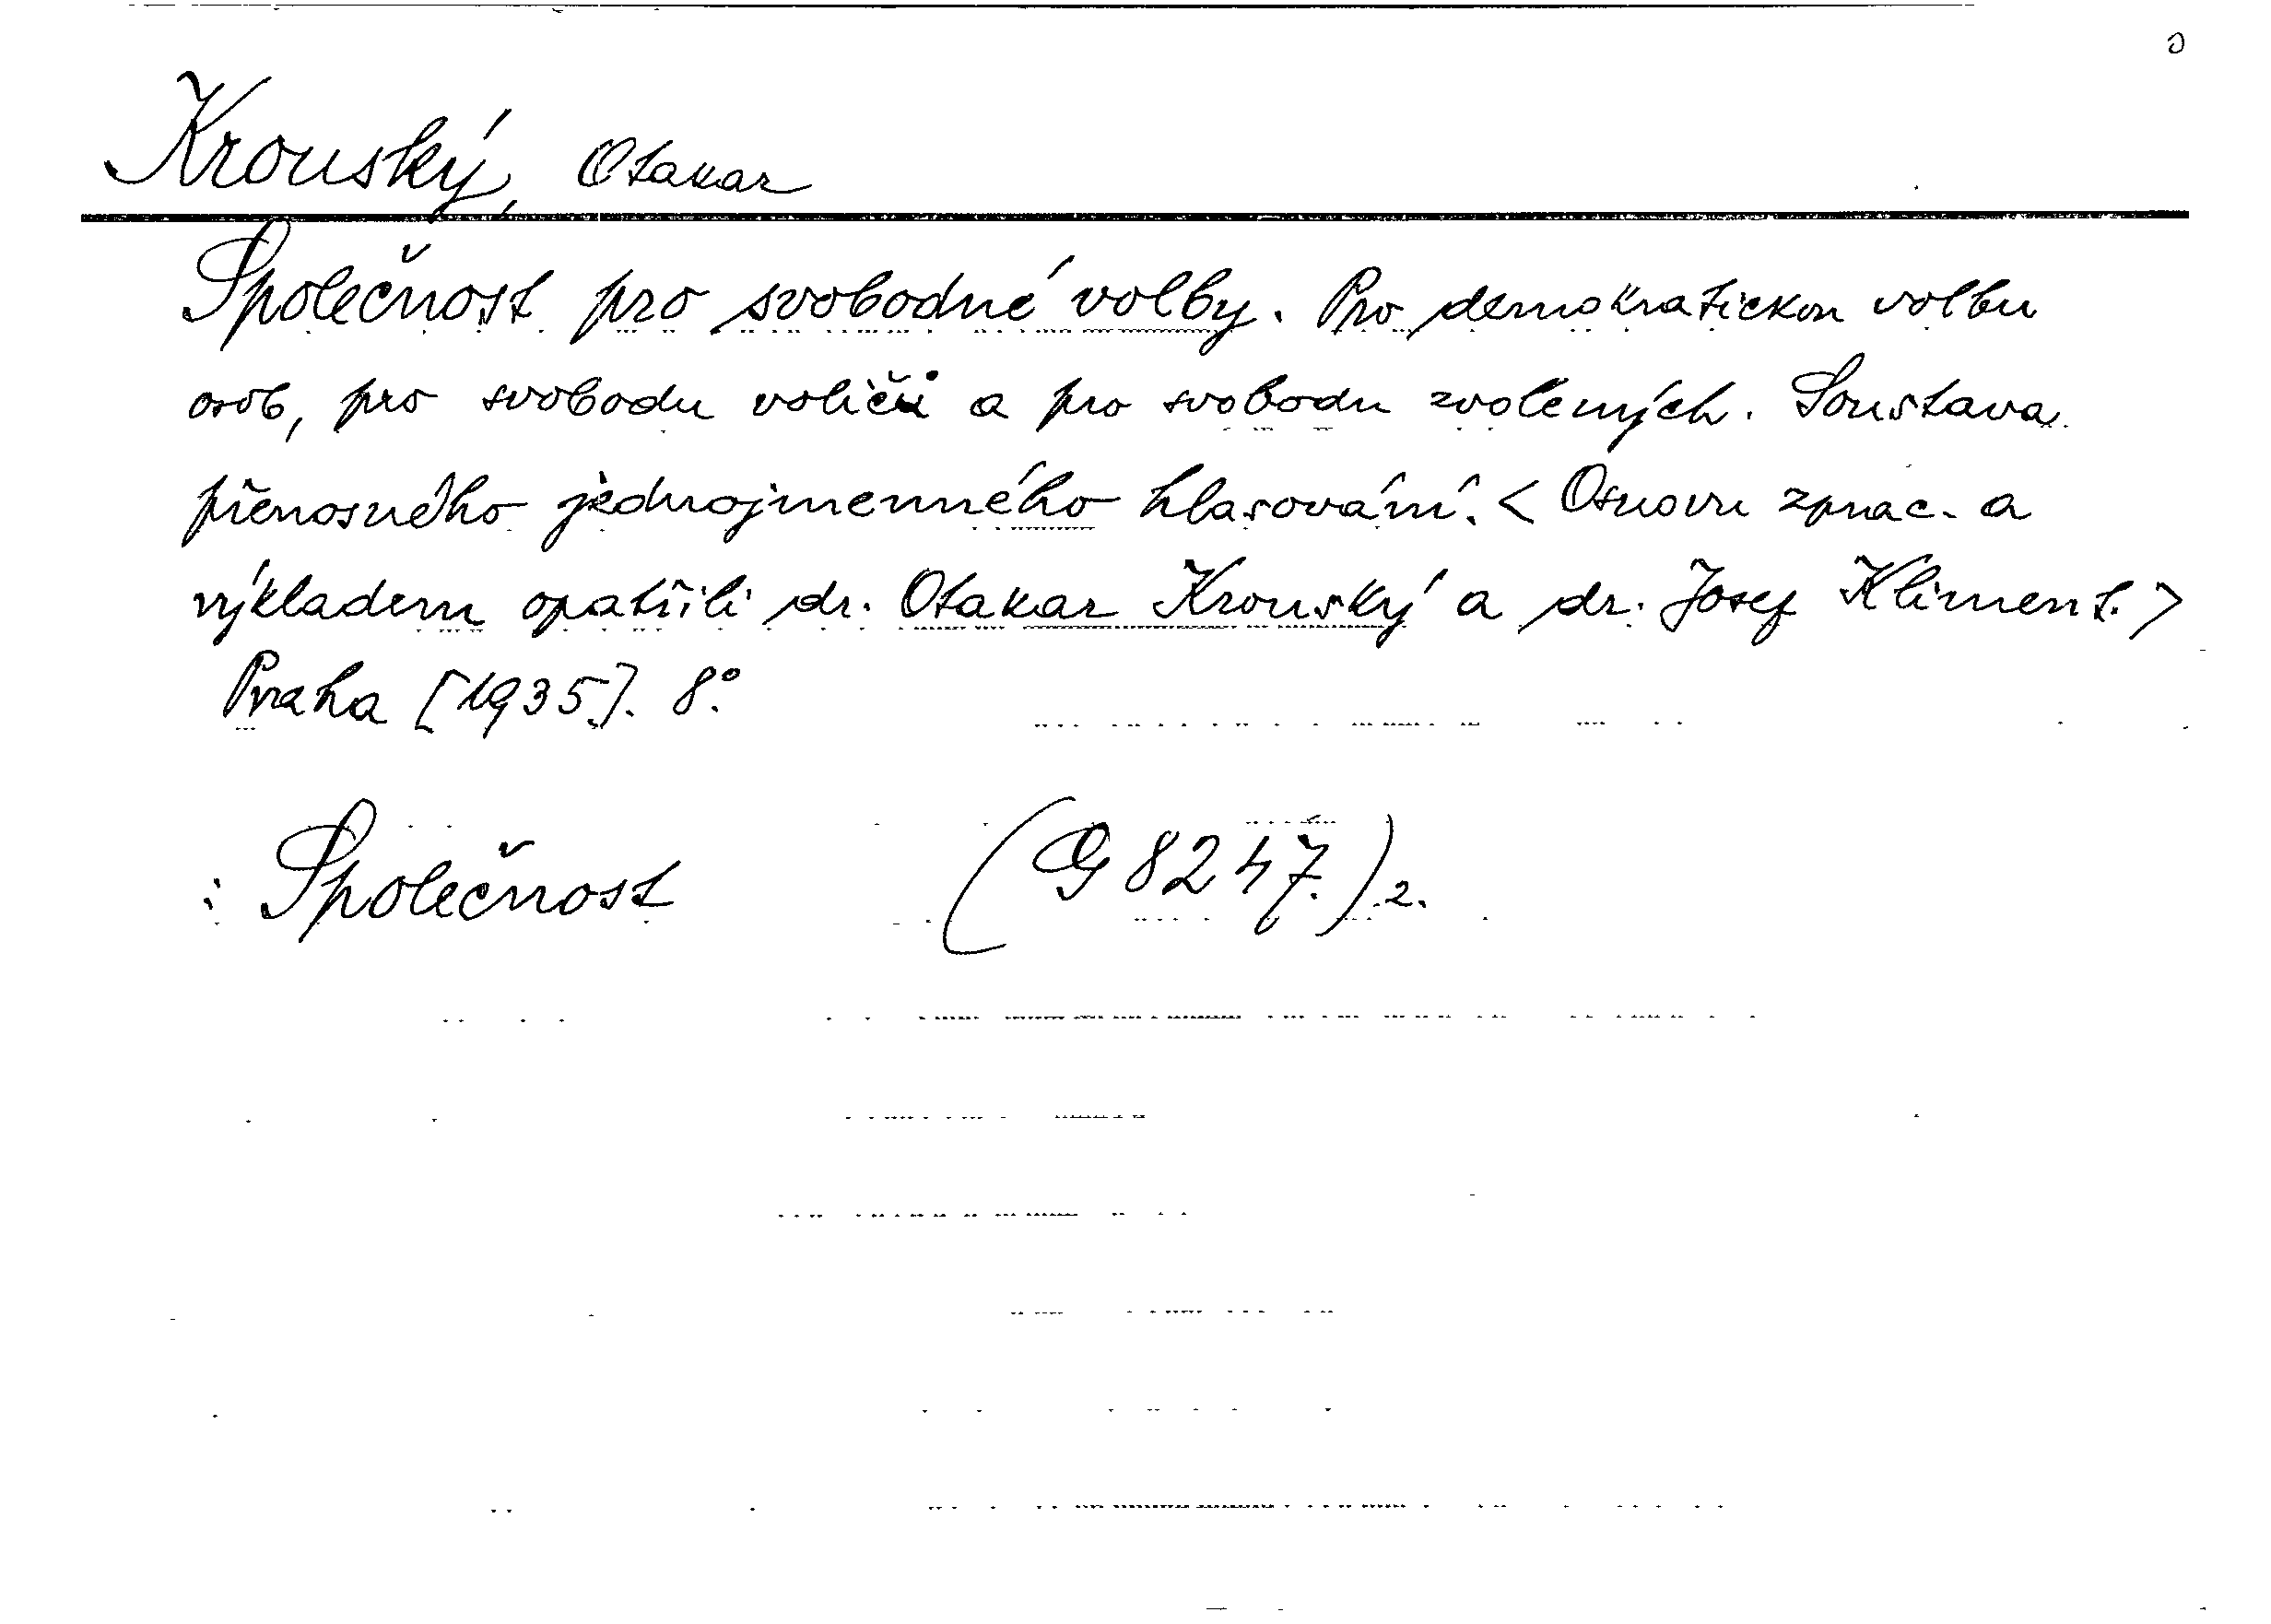 Krouský, Otakar
Společnost pro svobodné volby. Pro demokratickou volbu
osob, pro svobodu voličů a pro svobodu zvolených. Soustava
přenosného jednojmenného hlasování. < Osnovu zprac. a
výkladem opatřili dr. Otakar Krouský a dr. Josef Kliment. >
Praha [1935]. 8°.
: Společnost (G 8247.) 2.